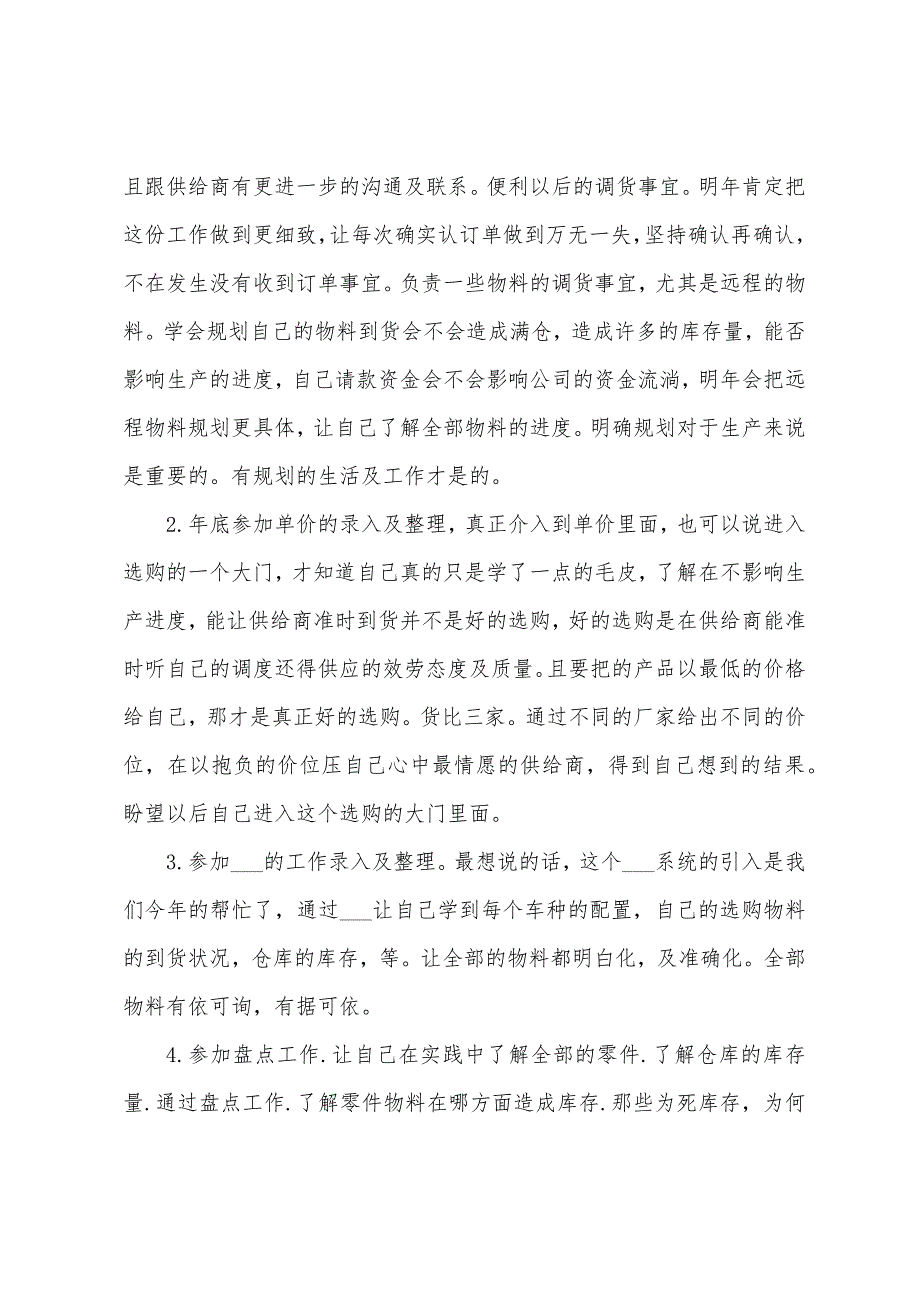 且跟供给商有更进一步的沟通及联系。便利以后的调货事宜。明年肯定把
这份工作做到更细致，让每次确实认订单做到万无一失，坚持确认再确认，
不在发生没有收到订单事宜。负责一些物料的调货事宜，尤其是远程的物
料。学会规划自己的物料到货会不会造成满仓，造成许多的库存量，能否
影响生产的进度，自己请款资金会不会影响公司的资金流淌，明年会把远
程物料规划更具体，让自己了解全部物料的进度。明确规划对于生产来说
是重要的。有规划的生活及工作才是的。
2.年底参加单价的录入及整理，真正介入到单价里面，也可以说进入
选购的一个大门，才知道自己真的只是学了一点的毛皮，了解在不影响生
产进度，能让供给商准时到货并不是好的选购，好的选购是在供给商能准
时听自己的调度还得供应的效劳态度及质量。且要把的产品以最低的价格
给自己，那才是真正好的选购。货比三家。通过不同的厂家给出不同的价
位，在以抱负的价位压自己心中最情愿的供给商，得到自己想到的结果。
盼望以后自己进入这个选购的大门里面。
3.参加___的工作录入及整理。最想说的话，这个___系统的引入是我
们今年的帮忙了，通过___让自己学到每个车种的配置，自己的选购物料
的到货状况，仓库的库存，等。让全部的物料都明白化，及准确化。全部
物料有依可询，有据可依。
4.参加盘点工作.让自己在实践中了解全部的零件.了解仓库的库存
量.通过盘点工作.了解零件物料在哪方面造成库存.那些为死库存，为何